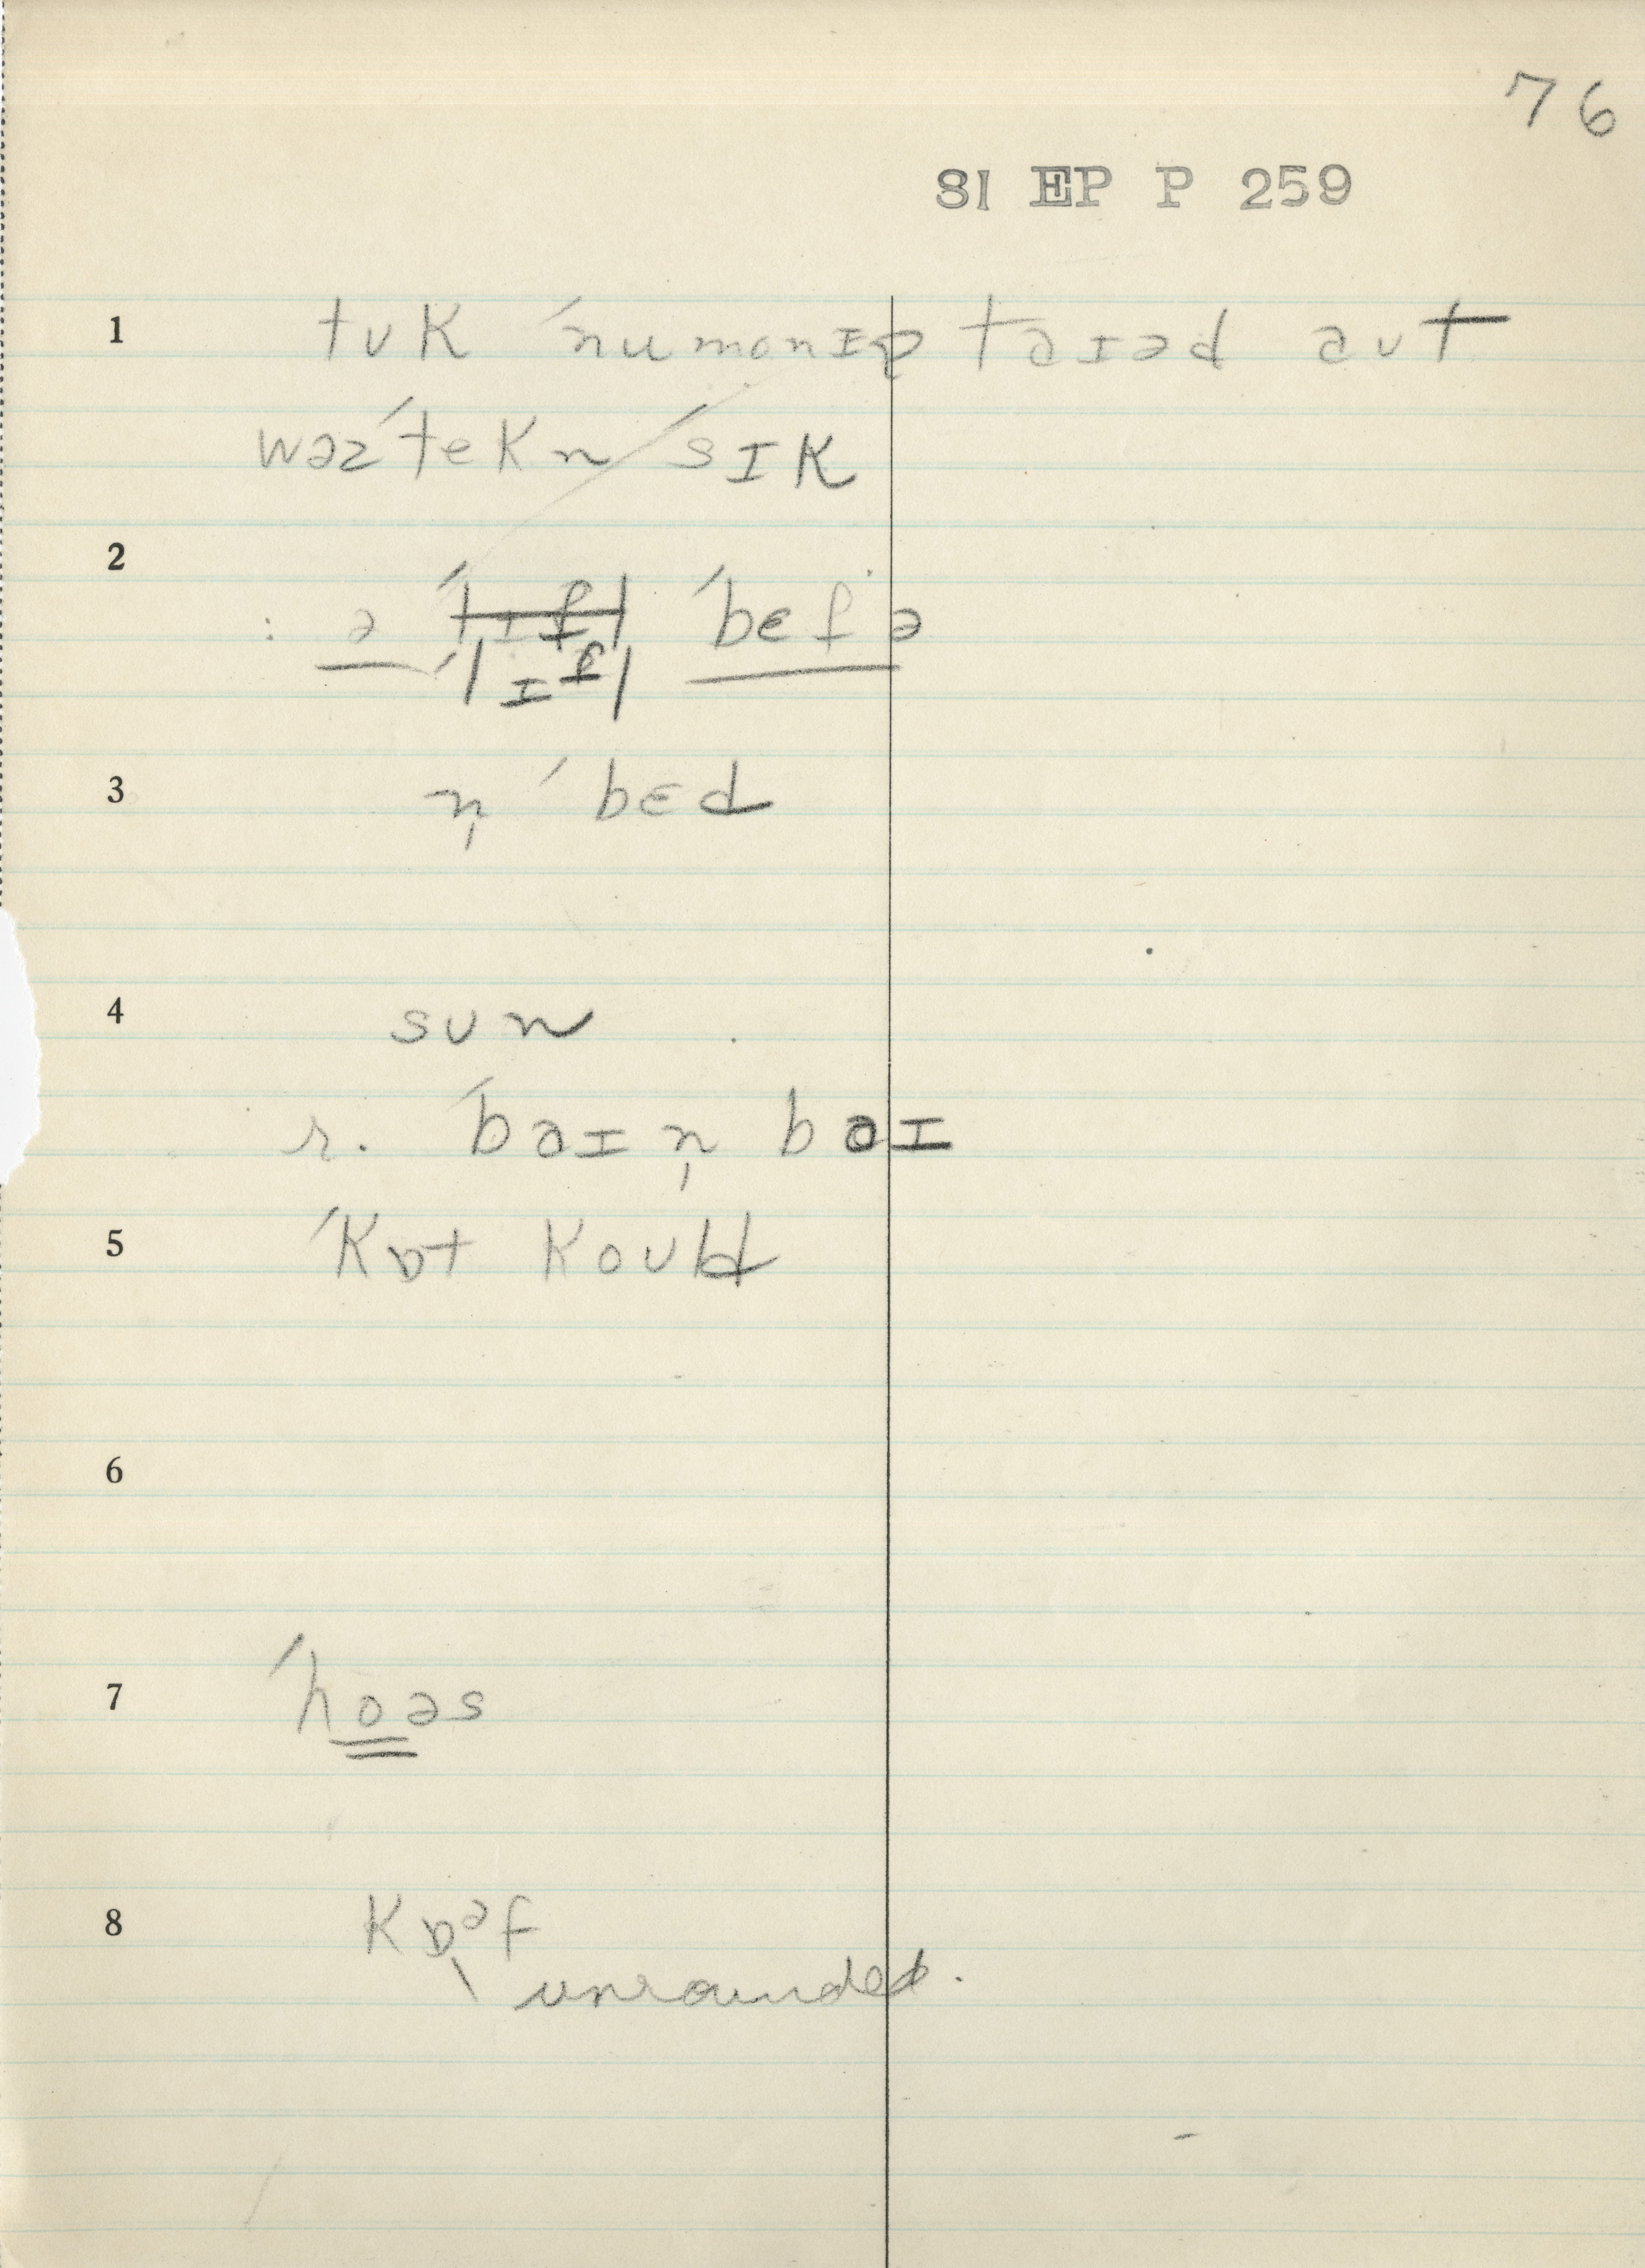 76
SI EP P 259
1 tʊk ˈnumonɪə taɪəd aʊt
wəzˈtekn ˈsɪk
2
: ə ˈlɪfl ˈbɛfə
ˈlɪfl
3 n̩ ˈbɛd
4 sʊn
r. ˈbaɪ n̩ baɪ
5 ˈkɒt koʊld
6
7 ˈhoəs
8 kɒᵊf
unrounded.